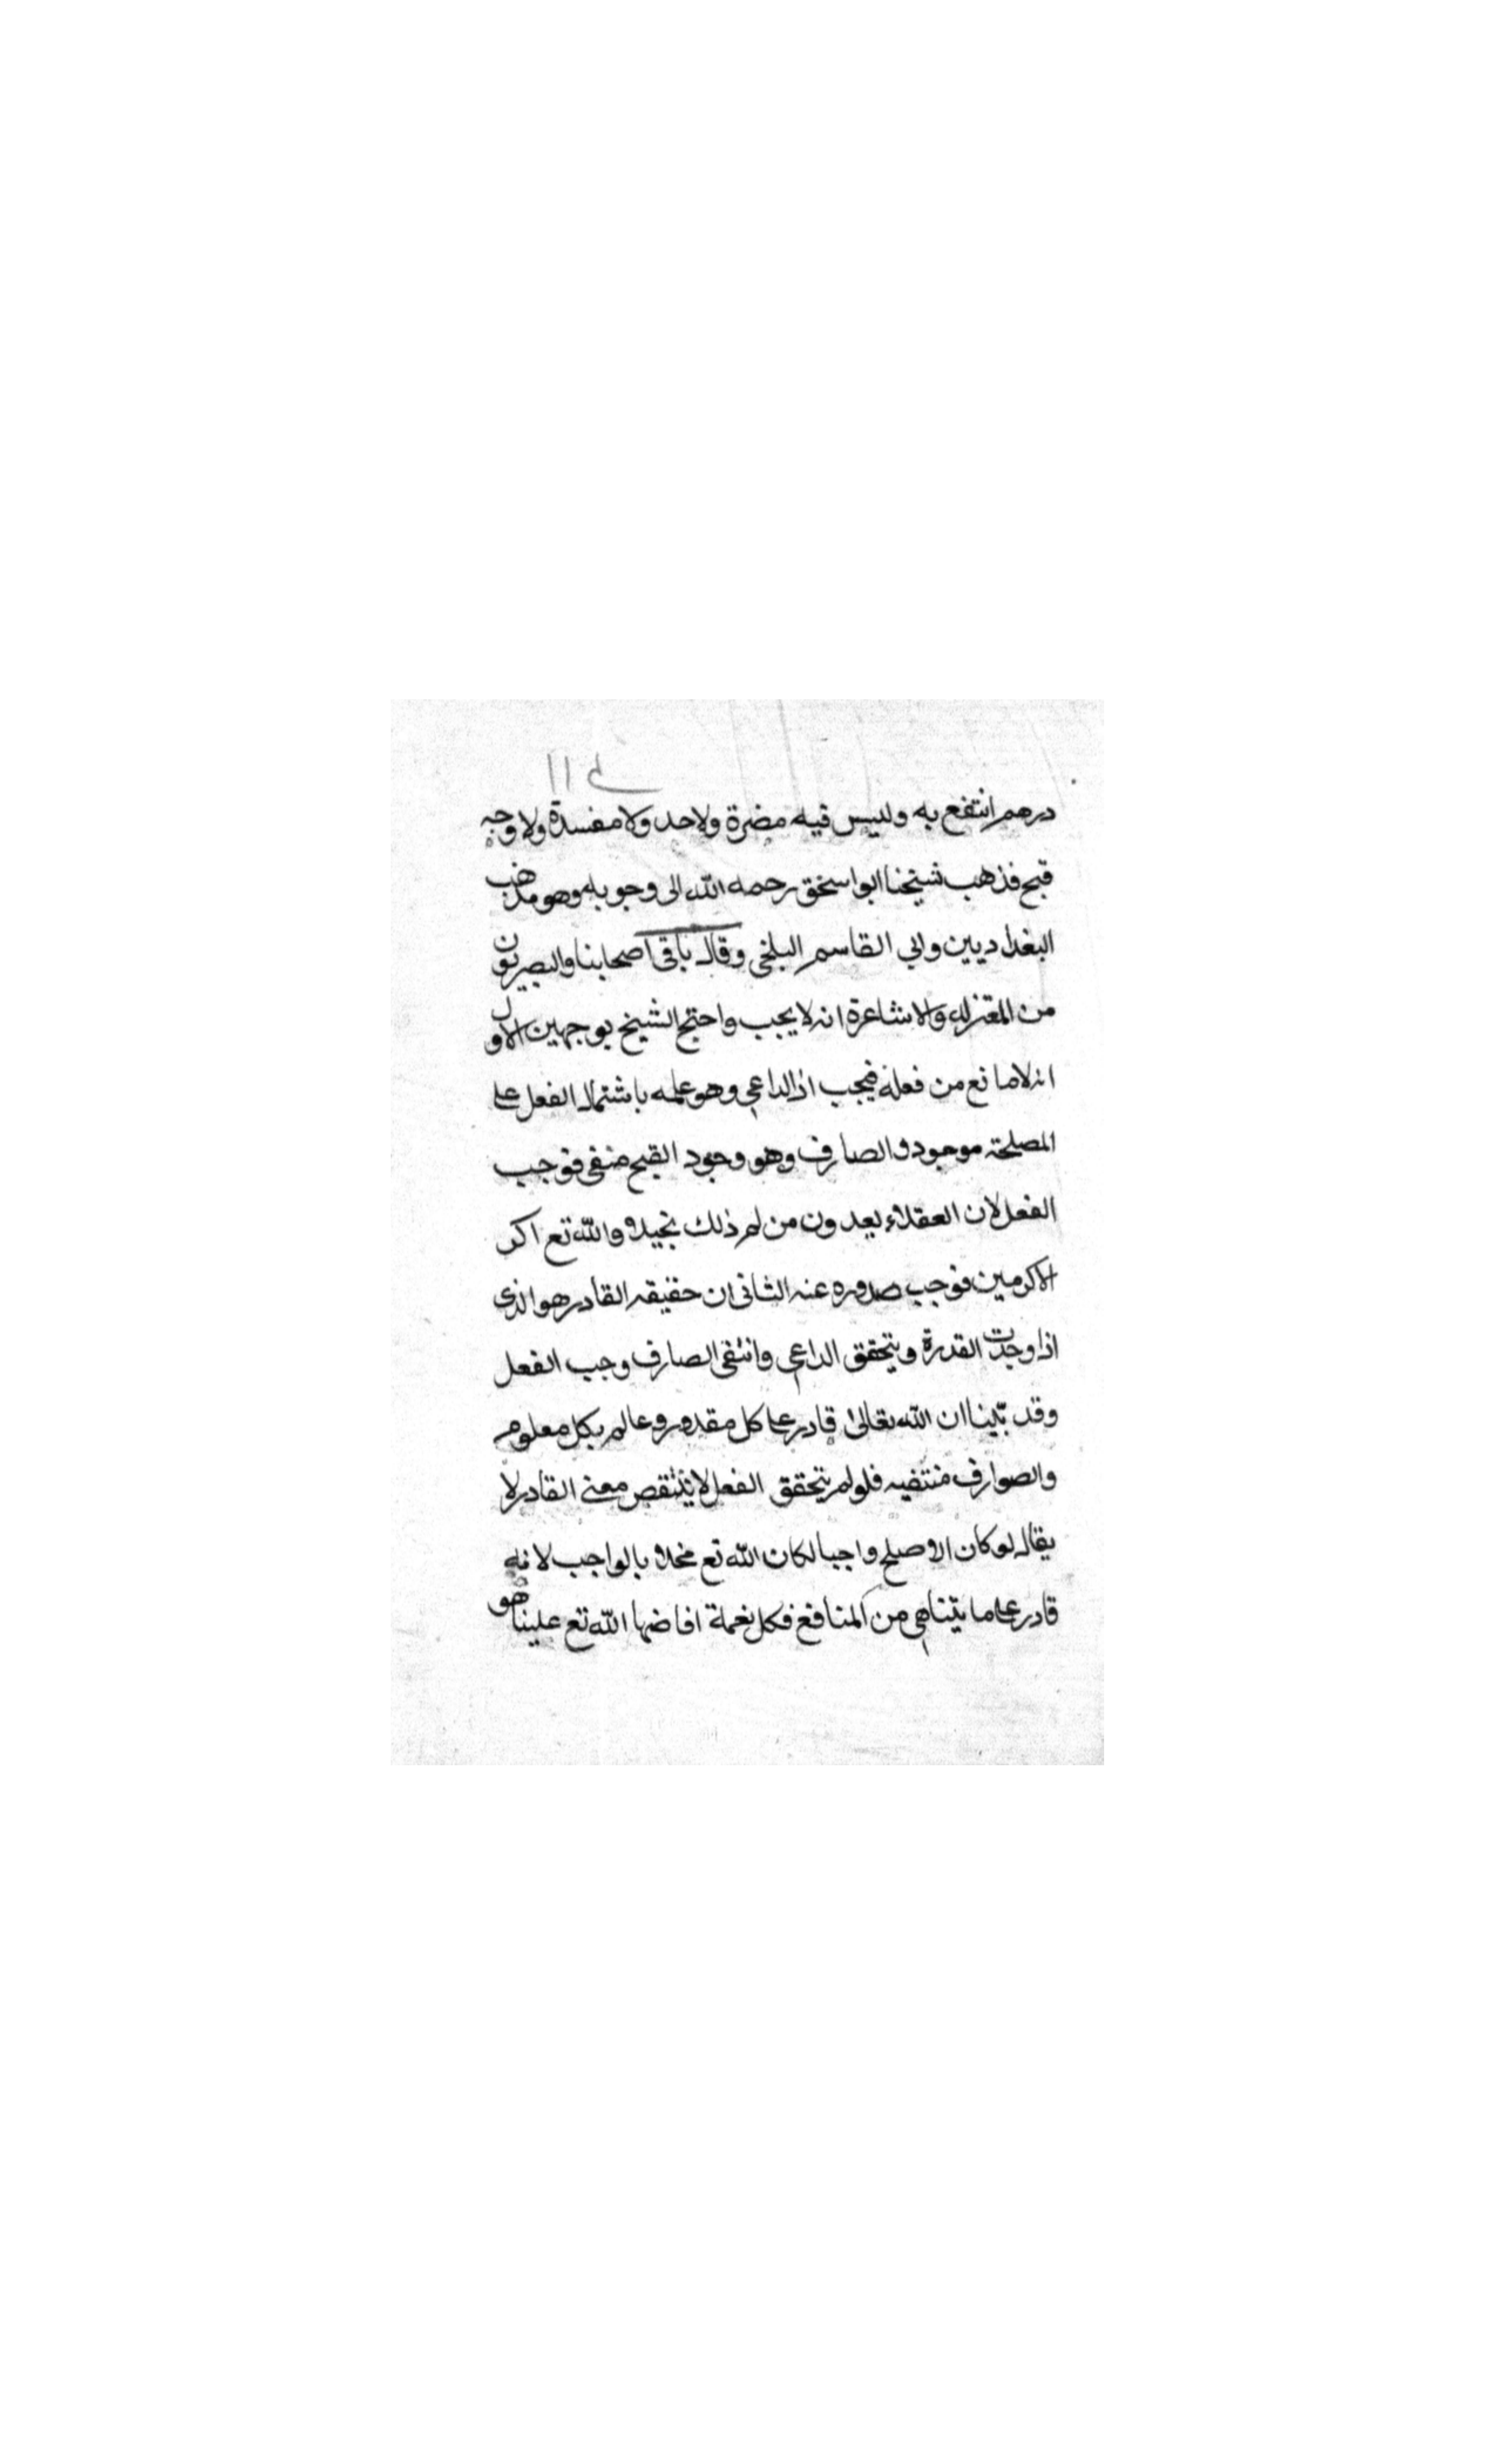 درهم انتفع به وليس فيه مضرة ولاحد ولا مفسدة ولا وجه
قبح فذهب شيخنا ابو اسحق رحمه الله الى وجوبه وهو مذهب
البغداديين وابي القاسم البلخي وقال باقي اصحابنا والبصريون
من المعتزله والاشاعرة انه لا يجب واحتج الشيخ بوجهين الاول
انه لا مانع من فعله فيجب اذ الداعي وهو علمه باشتمال الفعل على
المصلحة موجود والصارف وهو وجود القبح منفى فوجب
الفعل لان العقلاء يعدون من لم ذلك بخيلا والله تع اكر
الاكرمين فوجب صدوره عنه الثانى ان حقيقه القادر هو الذى
اذا وجدت القدرة ويتحقق الداعي وانتفى الصارف وجب الفعل
وقد بينا ان الله تعالى قادر على كل مقدور وعالم بكل معلوم
والصوارف منتفيه فلو لم يتحقق الفعل لا ينتقص معنى القادر لا
يقال لو كان الاصلح واجبا لكان الله تع مخلا بالواجب لانه
قادر على ما يتناهي من المنافع فكل نعمة افاضها الله تع علينا هو